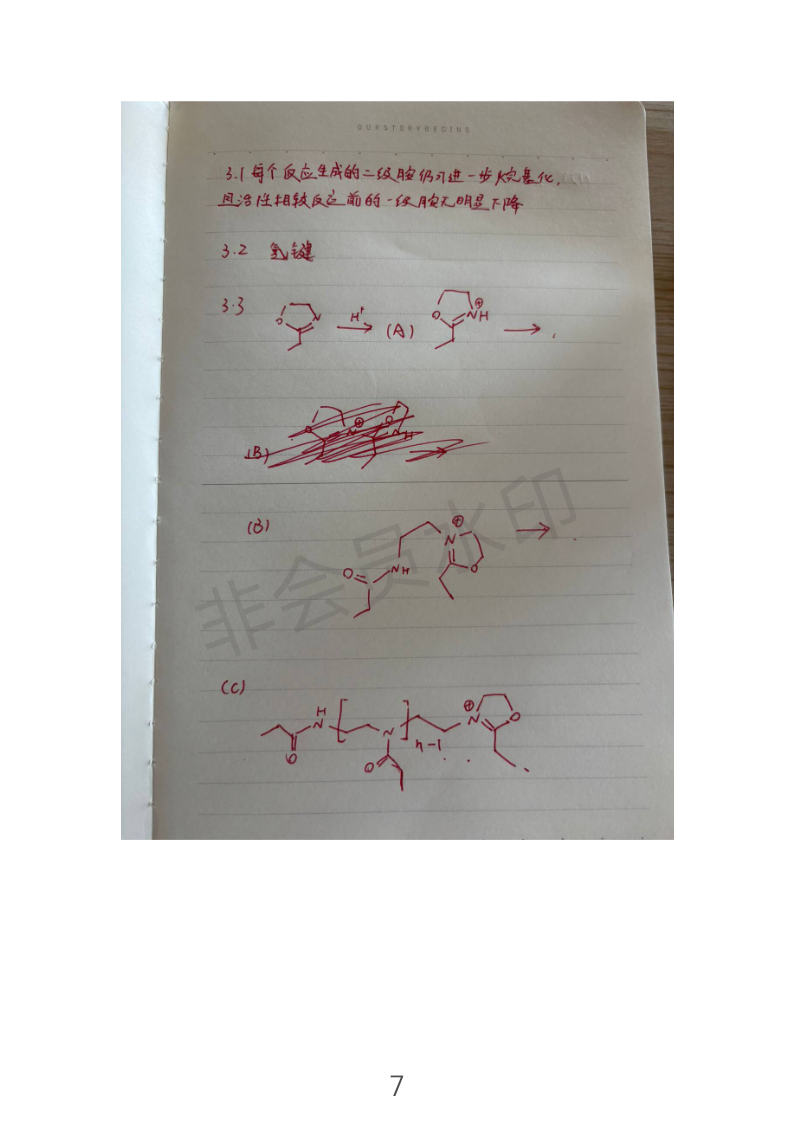 OURSTORYBEGINS
3.1 每个反应生成的二级胺仍可进一步烷基化,
且活性相较反应前的一级胺无明显下降
3.2 氢键
3.3 O N H⁺ (A) O N⊕H
(B) O N⊕ O N H
(B) N⊕ O NH O
(C) H N O N O n-1 N⊕ O
非会员水印
7